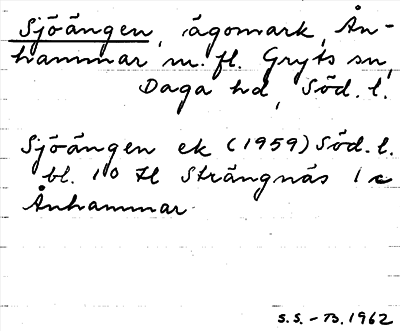 Sjöängen, ägomark, Ån-
hammar m. fl. Gryts sn,
Daga hd, Söd. l.
Sjöängen ek (1959) Söd. l.
bl. 10 H Strängnäs 1 c
Ånhammar
S.S. - B. 1962